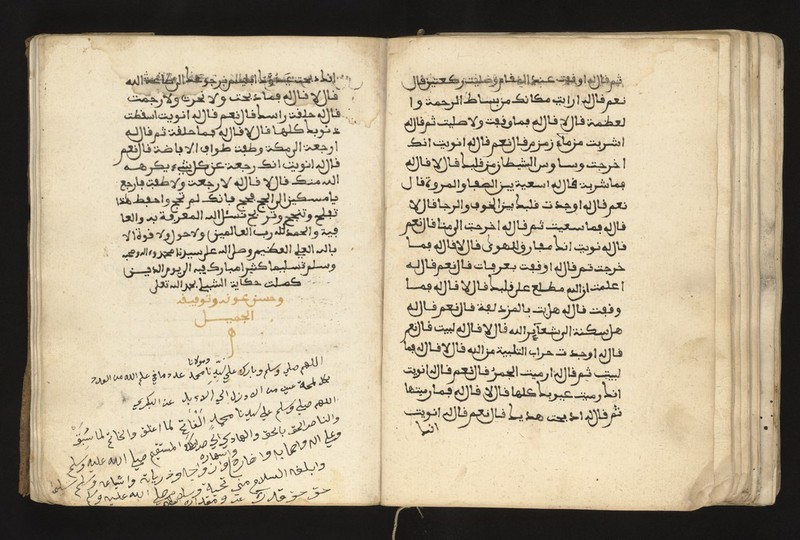 ثم قال له اوقفت عند المقام وصليت ركعتين قال
نعم قال له ارايت مكانك من بساط الرحمة وا
لعظمة قال لا قال له فما وقفت ولا صليت ثم قال له
اشربت من ماء زمزم قال نعم قال له انويت انك
اخرجت وساوس الشيطان من قلبك قال لا قال له
فما شربت قال له اسعيت بين الصفا والمروة قال
نعم قال له اوجدت قلبك بين الخوف والرجا قال لا
قال له فما سعيت ثم قال له اخرجت الى منا قال نعم
قال له نويت انك مفارق للهوى قال لا قال له فما
خرجت ثم قال له اوقفت بعرفات قال نعم قال له
اعلمت ان الله مطلع على قلبك قال لا قال له فما
وقفت قال له هل بت بالمزدلفة قال نعم قال له
هل سكنت الى شعآئر الله قال لا قال له لبيت قال نعم
قال له اوجدت جواب التلبية من الله قال لا قال له فما
لبيت ثم قال له ارميت الجمر قال نعم قال له انويت
انك رميت عيوبك كلها قال لا قال له فما رميتها
ثم قال له اذبحت هديك قال نعم قال له انويت
انك
انك ذبحت الى طاعة الله
قال لا قال له فما ذبحت ولا نحرت ولا رجعت
قال له حلقت راسك قال نعم قال له انويت اسقطت
ذنوبك كلها قال لا قال له فما حلقت ثم قال له
ارجعت الى مكة وطفت طواف الافاضة قال نعم
قال له انويت انك رجعت عن كل شيء يكرهه
الله منك قال لا قال له لا رجعت ولا طفت فارجع
يا مسكين الى الحج فحج فانك لم تحج واحفظ هذا
تفلح وتنجح وتربح نسئل الله المعرفة به والعا
فية والحمد لله رب العالمين ولا حول ولا قوة الا
بالله العلي العظيم وصلى الله على سيدنا محمد وءاله وصحبه
وسلم تسليما كثيرا مباركا فيه الى يوم الدين
كملت حكاية الشبلي بحمد الله تعلى
وحسن عونه وتوفيقه
الجميل
اللهم صلي وسلم وبارك على سيدنا ومولانا محمد عدد ما في علم الله من العدد
من الازل الى الابد
اللهم صلي وسلم على سيدنا محمد الفاتح لما اغلق والخاتم لما سبق
والناصر الحق بالحق والهادي الى صراطك المستقيم صلى الله عليه وسلم
وعلى اله واصحابه وانصاره وازواجه وذريته واشياعه
وابلغه السلام مني تحية
حق قدره ومقداره العظيم صلى الله عليه وسلم